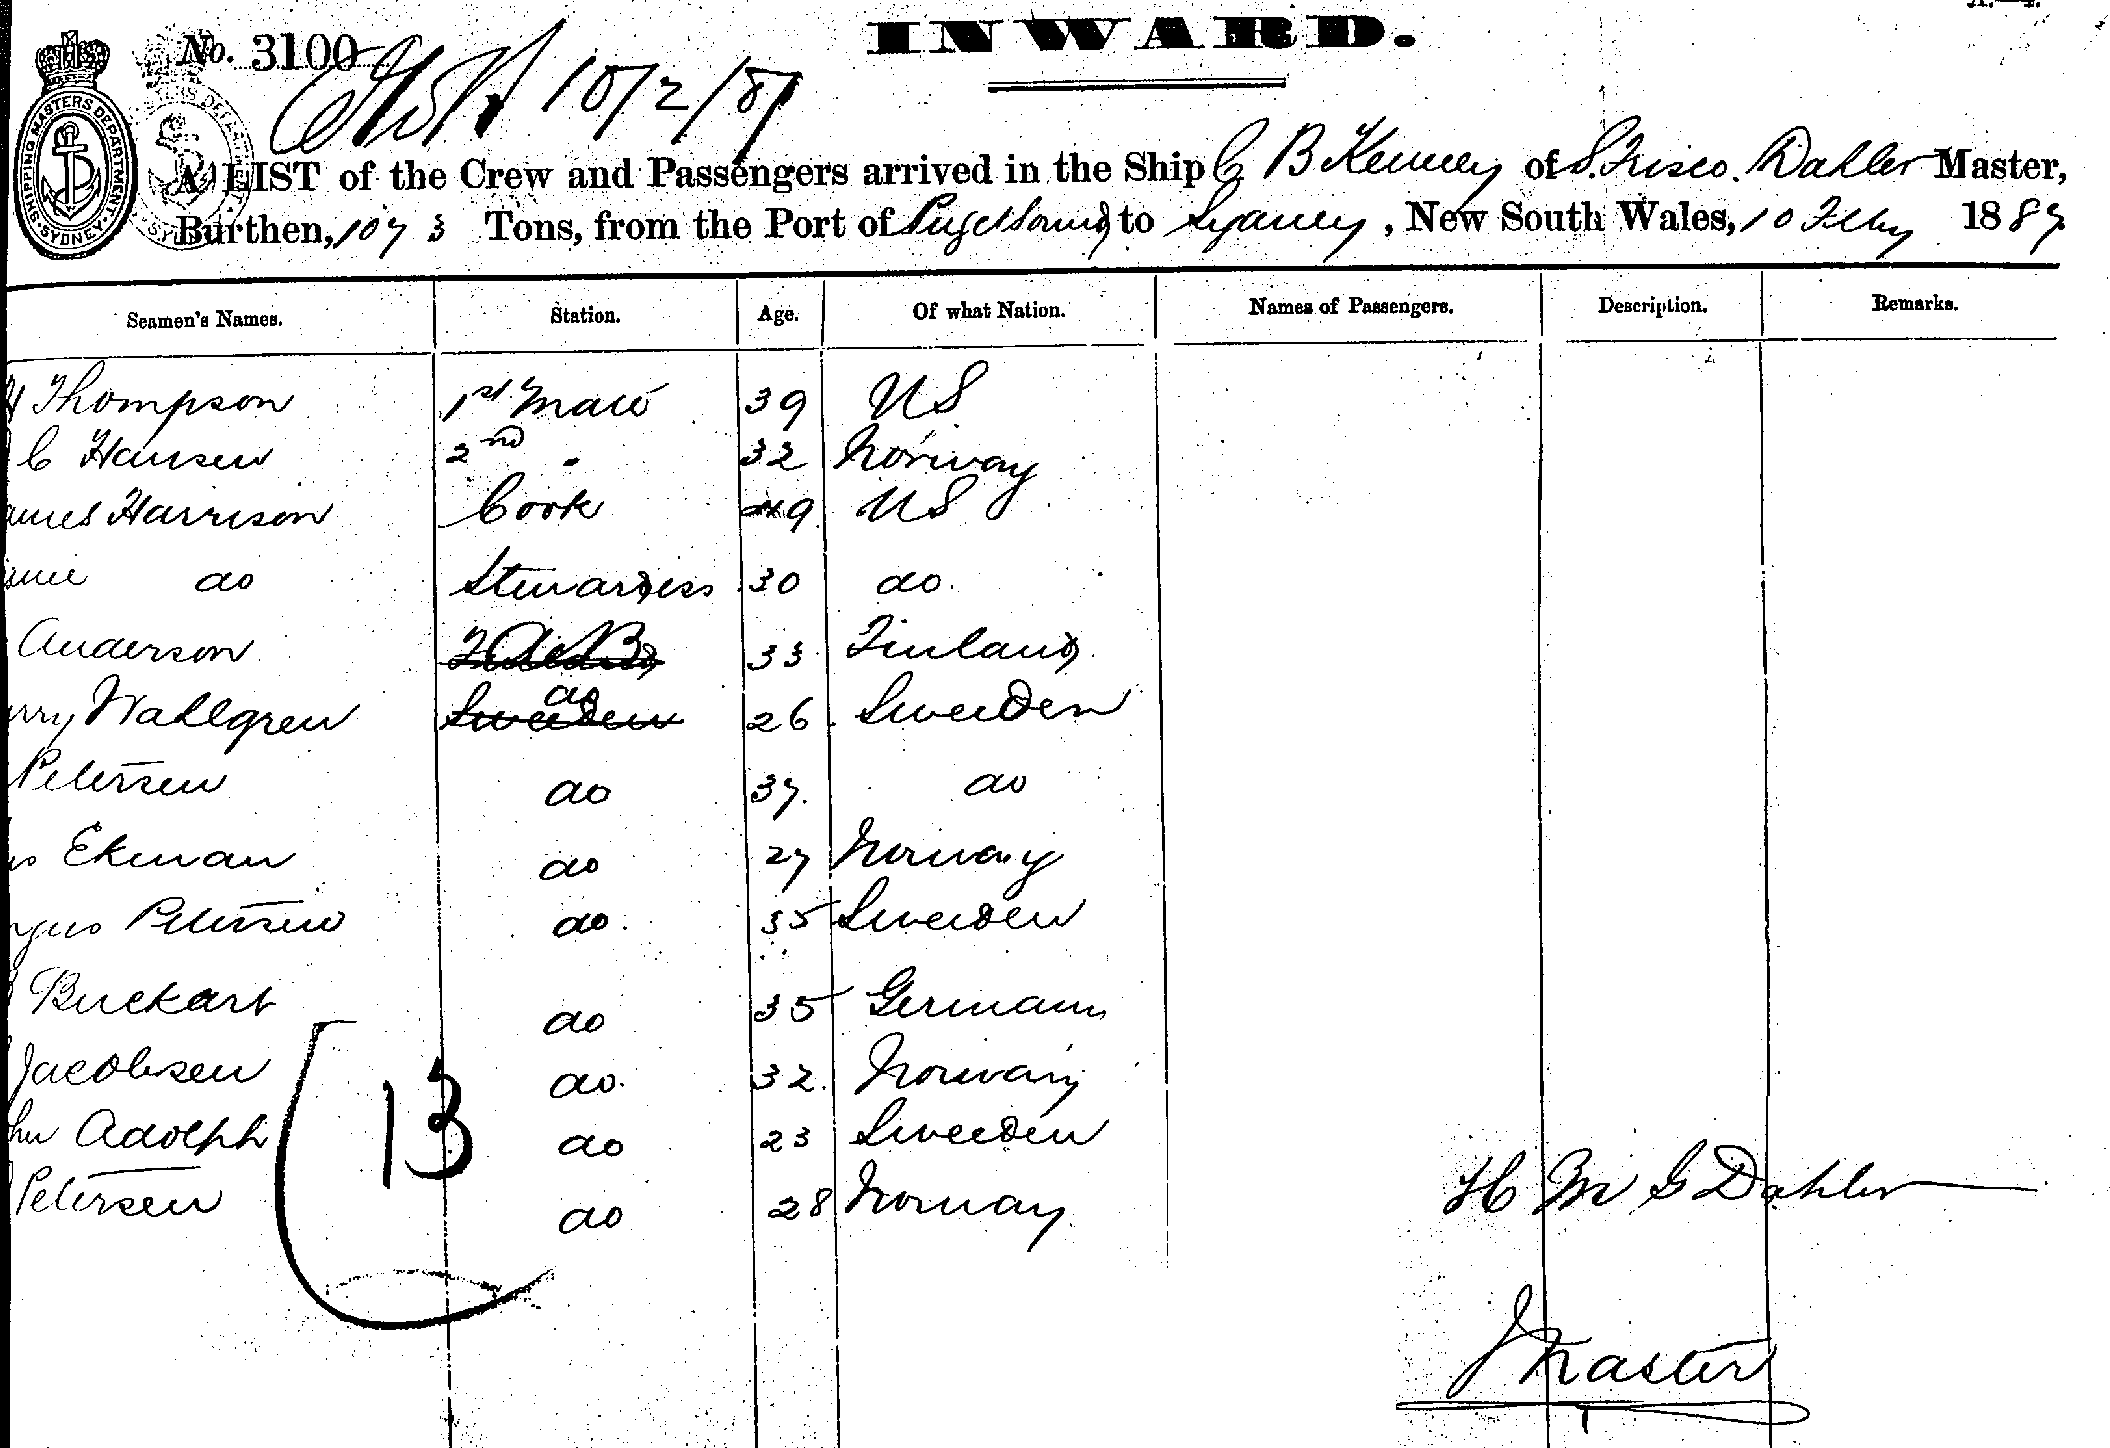 INWARD.
No. 3100
10/2/87
SHIPPING MASTERS DEPARTMENT SYDNEY
A LIST of the Crew and Passengers arrived in the Ship C B Kenney of S. Frisco. Dahler Master,
Burthen, 1073 Tons, from the Port of Puget Sound to Sydney, New South Wales, 10 Feby 1887
Seamen's Names. Station. Age. Of what Nation. Names of Passengers. Description. Remarks.
Thompson 1st Mate 39 US
C Hansen 2nd " 32 Norway
ames Harrison Cook 49 US
do Stewardess 30 do.
Anderson AB 33 Finland
rry Wahlgren Sweeden do 26 Sweeden
Petersen do 37. do
Ekman do 27 Norway
Petersen do. 35 Sweeden
Buckart do 35 German
Jacobsen do. 32. Norway
hn Adolph do 23 Sweeden
Petersen do 28 Norway
13
H M G Dahler
Master